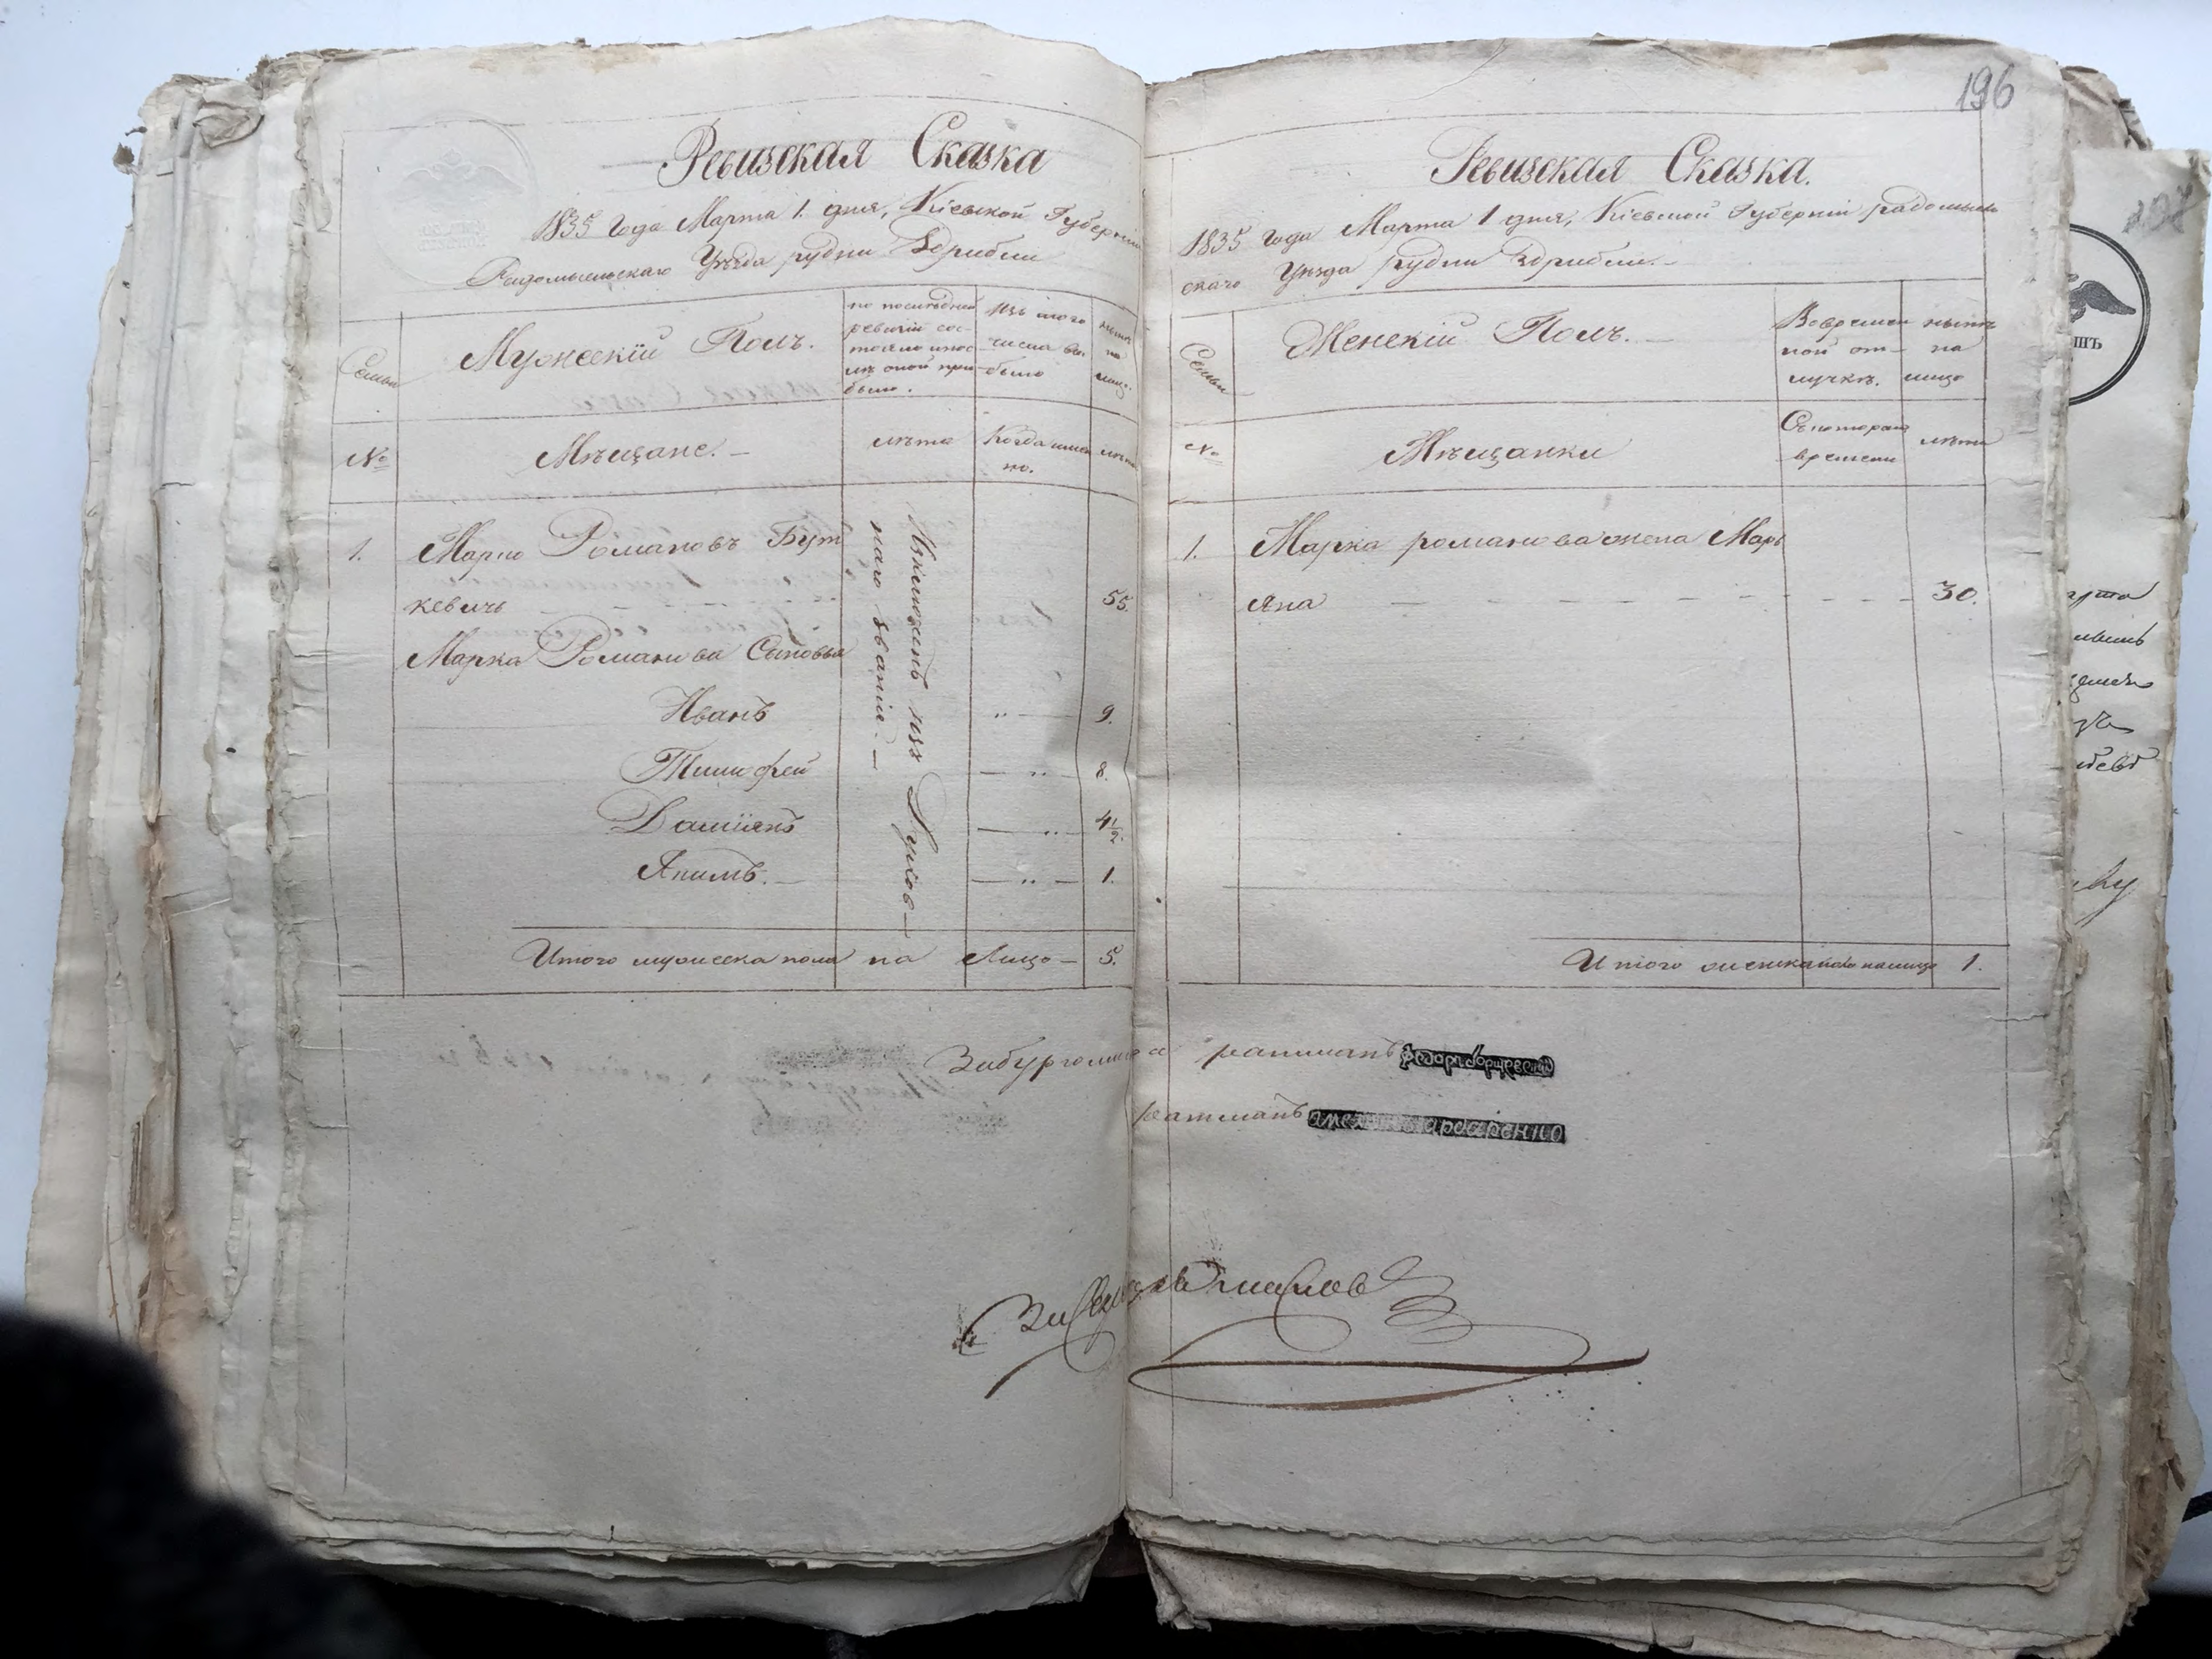 Ревизская Сказка
1835 Года Марта 1. дня, Кіевской Губерніи
Радомысльскаго Уѣзда рудни Здрибли
Семьи
Мужескій Полъ.
по послѣдней
ревизіи сос-
тояло и пос-
лѣ оной при-
было.
Изъ того
числа вы-
было
нынѣ
на
лицо.
№
Мѣщане. —
лѣта
Когда имен
но.
лѣта
1. Марко Романовъ Бут
кевичь 55.
Марка Романова Сыновья
Иванъ „ — 9.
Тимофей — „ — 8.
Даміянъ — „ — 4½.
Якимъ. — — „ — 1.
наго званія. —
Итого мужеска пола на Лицо — 5.
196
Ревизская Сказка.
1835 года Марта 1 дня, Кіевской Губерніи радомысль
скаго Уѣзда рудни Здрибли. —
Семьи
Женскій Полъ. —
Вовремен
ной от-
лучкѣ.
нынѣ
на
лицо
№
Мѣщанки
Скотораго
времени
лѣта
1. Марка романова жена Марь
яна — — — — — — — 30.
Итого женска пола налицо 1.
Забургомистра ратманъ
ратманъ